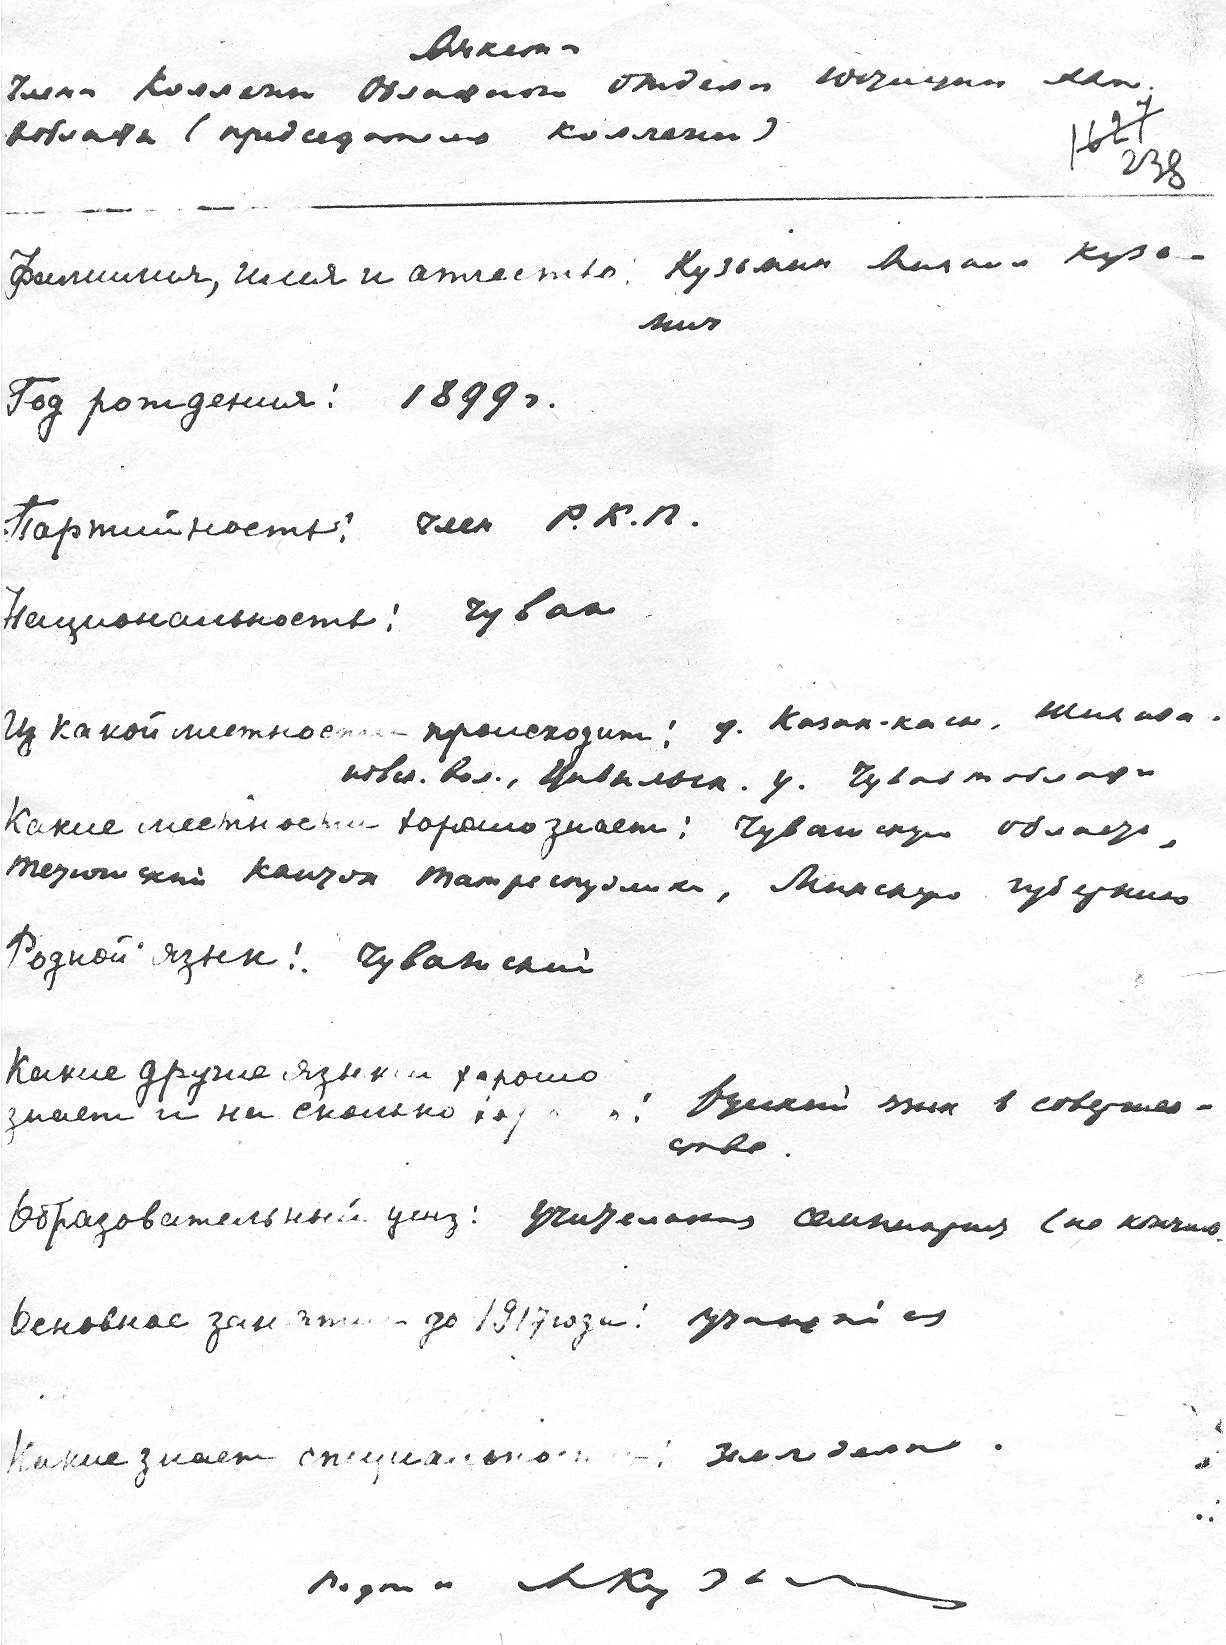 Анкета
Члена Коллегии Областного отдела юстиции
(председателя коллегии)
1627
238
Фамилия, имя и отчество: Кузьмин Михаил Кузь-
мич
Год рождения: 1899 г.
Партийность: член Р.К.П.
Национальность: чуваш
Из какой местности происходит: д. Казак-касы, Шихаза-
новск. вол., Цивильск. у. Чувашобласти
Какие местности хорошо знает: Чувашскую область,
Тетюшский кантон Татреспублики, Минскую губернию
Родной язык: Чувашский
Какие другие языки хорошо
знает и на сколько хорошо: Русский язык в совершен-
стве.
Образовательный ценз: учительская семинария (не кончил
Основное занятие до 1917 года: учащийся
Какие знает специальности: земледелие.
Подпись МКузьмин